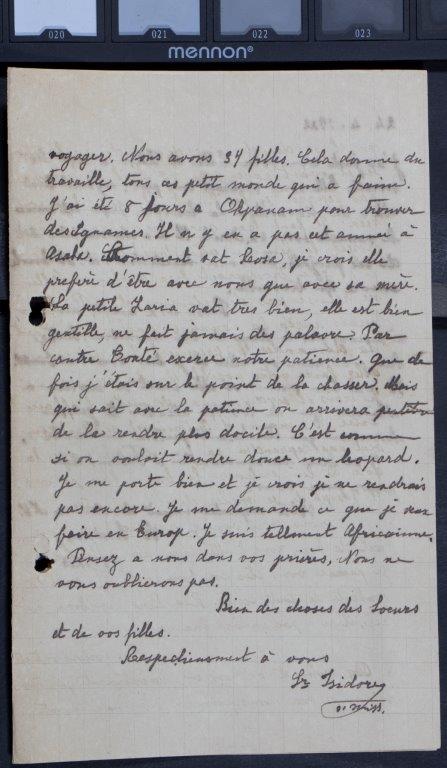 020 021 022 023
mennon®
voyager. Nous avons 34 filles. Cela donne du
travaille, tous ces petit monde qui a faim.
J'ai été 8 Jours a Okpanam pour trouver
des Ignames. Il n y en a pas cet année à
Asaba. Comment vat Rosa, je crois elle
prefère d'être avec nous que avec sa mère.
La petite Zaria vat tres bien, elle est bien
gentille, ne fait jamais des palavre. Par
contre Conté exerce notre patience. Que de
fois j'étais sur le point de la chasser. Mais
qui sait avec la patience on arrivera peutêtre
de la rendre plus docile. C'est comme
si on vouloit rendre douce un leopard.
Je me porte bien et je crois je ne rendrais
pas encore. Je me demande ce que je
faire en Europ. Je suis tellment Africainne.
Pensez a nous dans vos prières, Nous ne
vous oublierons pas.
Bien des choses des Soeurs
et de vos filles.
Respectieusment à vous
Sr Isidore